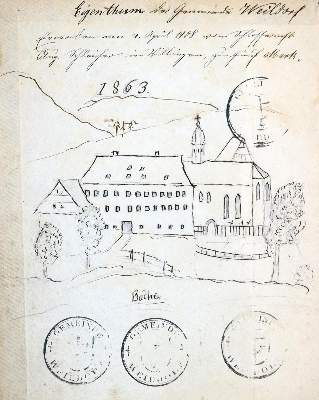 Eigenthum der Gemeinde Weildorf
Erworben am 2. April 1908 vom
Aug. Schleicher in Villingen, zu fünf Mark.
1863.
Bache
GEMEINDE
WEILDORF
GEMEINDE
WEILDORF
WEILDORF